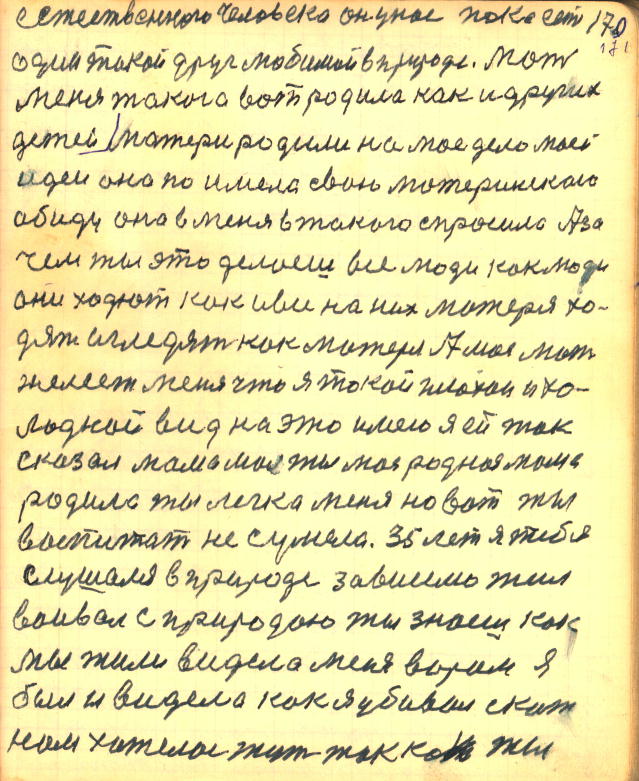 естественного человека он у нас пока ест 170
171
один такой друг любимой в природе. мат
меня такога вот родила как и других
детей матери родили на мое дело моей
идеи она по имела свою материнского
обиду она в меня в такого спросила А за
чем ты это делаеш все люди как люди
они ходют как и все на них матеря хо-
дят и гледят как матеря А мое мат
желеет меня что я такой плохои и хо-
лодной вид на это имею я ей так
сказал мама моя ты моя родная мама
родила ты легка меня но вот ты
воспитат не сумела. 35 лет я тебя
слушался в природе зависемо жил
воивал с природаю ты знаеш как
мы жили видела меня ворам я
был и видела как я убивал скот
нам хателос жит так как ты